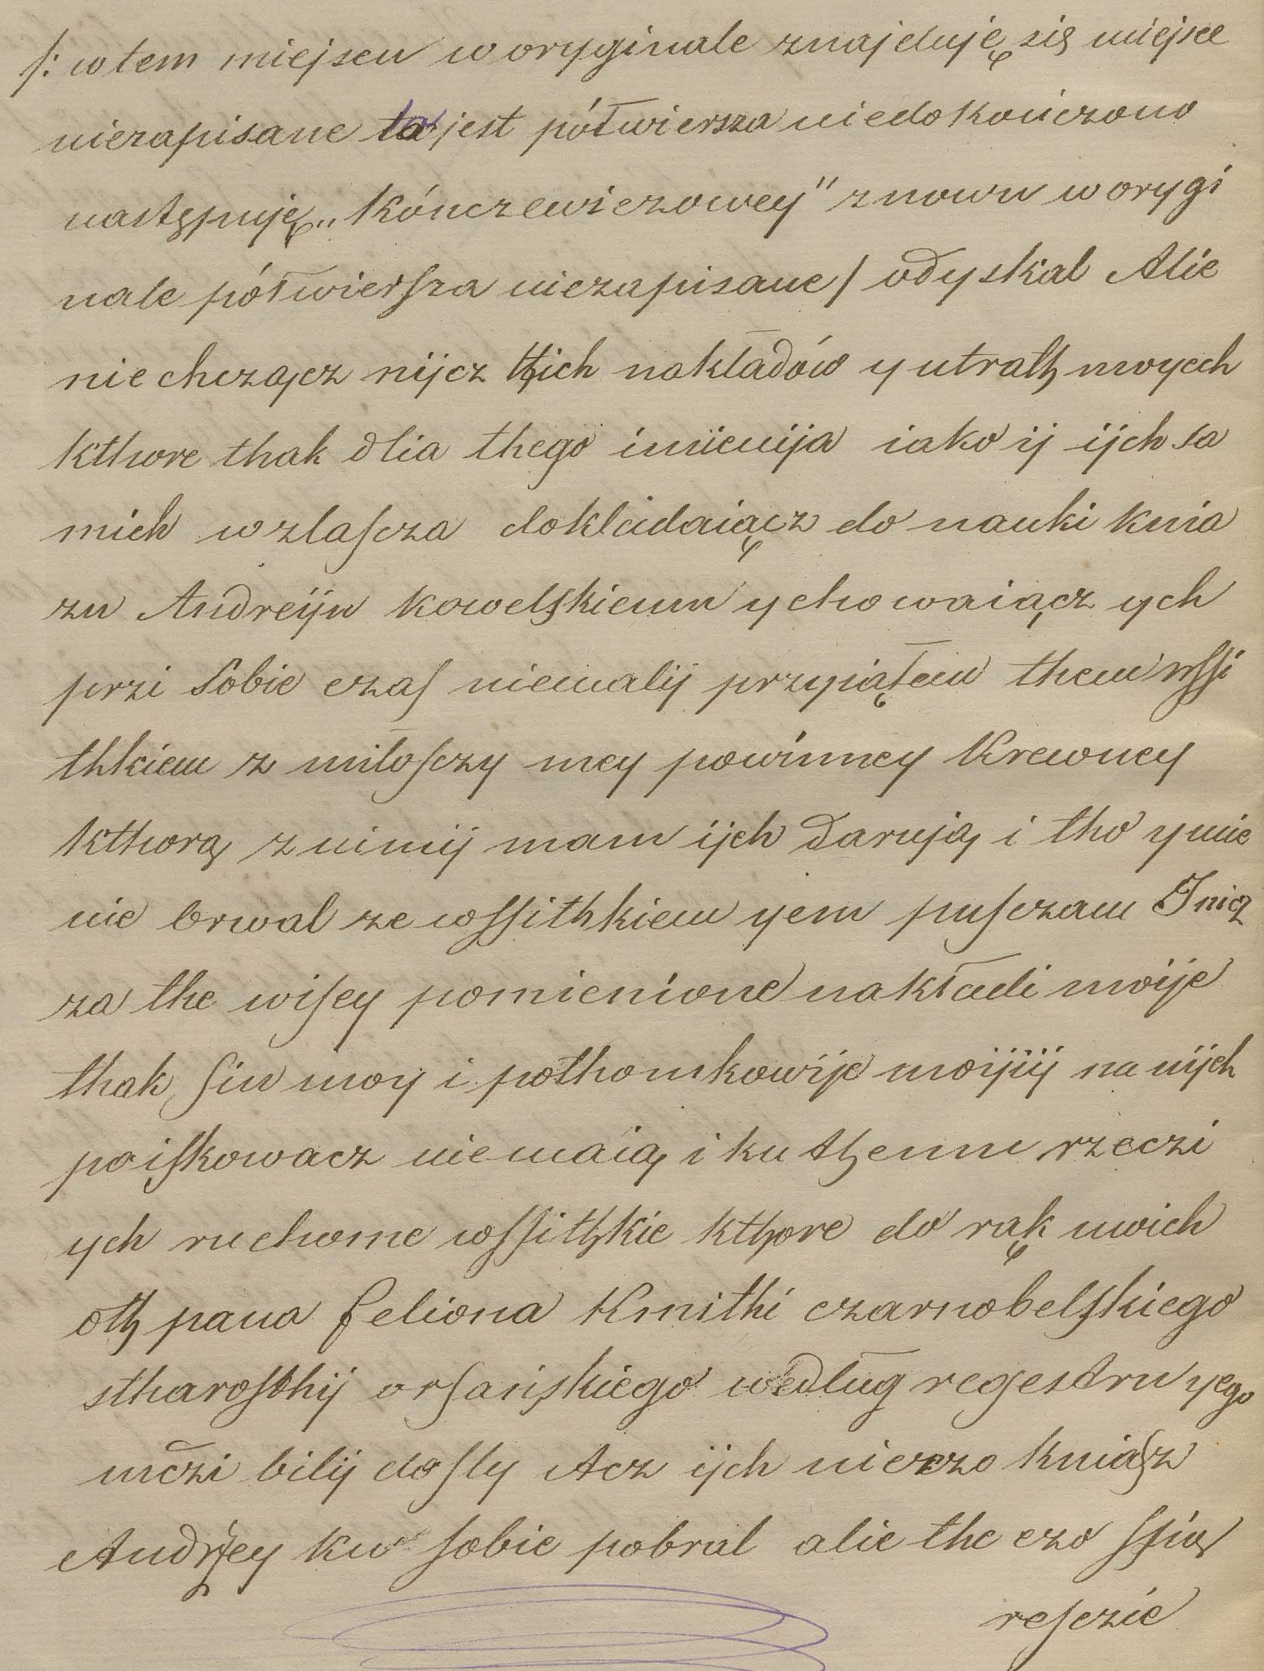 /: w tem miejscu w oryginale znajduję się miejsce
niezapisane to jest półwiersza niedokończono
następuję „Kónczewiczowey" znowu w orygi
nale półwierſza niezapisane / odyskal Alie
nie chczącz nijcz thich nakładów y utrath moych
kthore thak dlia thego imienija iako ij ijch sa
mich wzlaſcza dokladaiącz do nauki knia
zu Andreiju Kowelſkiemu y chowaiącz ych
przi Sobie czaſ niemalij przyiąłem them wſſi
thkiem z miłoſczy mey powinney Krewney
kthorą z nimij mam ijch darują i tho ymie
nie brwal ze wſſithkiem yem puſczam I nicz
za the wiſey pomienione nakładi moije
thak ſin moy i pothomkowije moijij na nijch
poiſkowacz nie maią i ku themu rzeczi
ych ruchome wſſithkie kthore do rąk moich
oth pana feliona Kmithi czarnobelſkiego
stharoſthij orſańſkiego według regestru yego
mczi bilij doſly Acz ijch nieczo kniaſz
Andrjey ku ſobie pobral alie the czo ſſią
reſczie